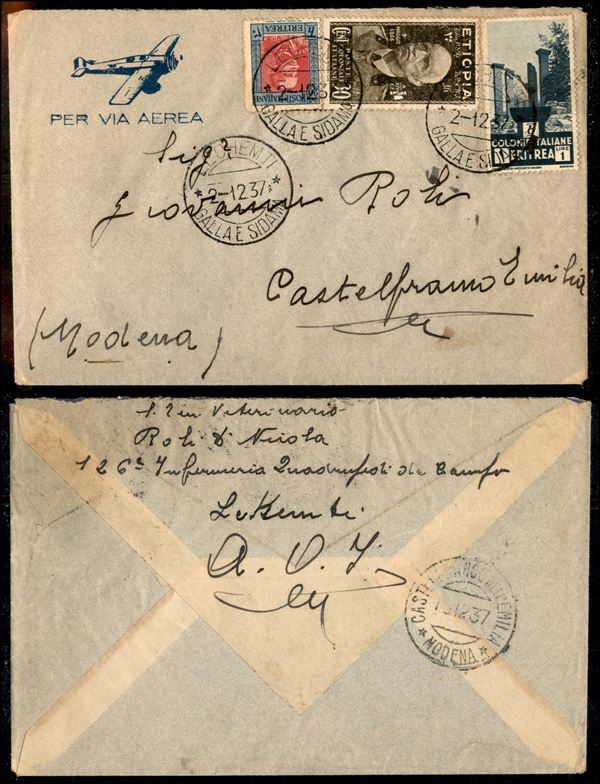 PER VIA AEREA
ERITREA
POSTE ITALIANE
ETIOPIA
POSTE COLONIALI ITALIANE
CENT 30
COLONIE ITALIANE
ERITREA
LIRE 1
2-12 37
GALLA E SIDAMA
2-12 37
GALLA E SIDAMA
LECHEMTI
2-12 37
GALLA E SIDAMA
Sigr
Giovanni Roli
Castelfranco Emilia
(Modena)
S. Ten Veterinario
Roli Dr Nicola
126a Infermeria Quadrupedi da Campo
Lekemti
A. O. I.
CASTELFRANCO DELL'EMILIA
12 37
MODENA